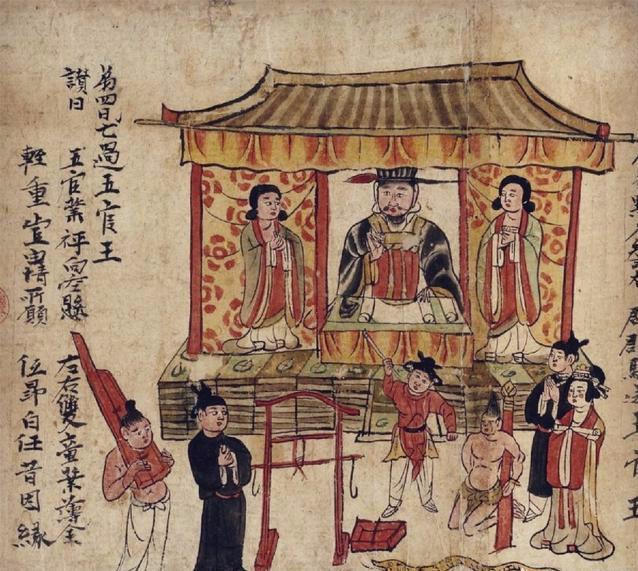 弟四日七過五官王
讃曰 五官業秤向空懸 左右雙童業簿全
輕重豈由情所願 低昂自任昔因緣